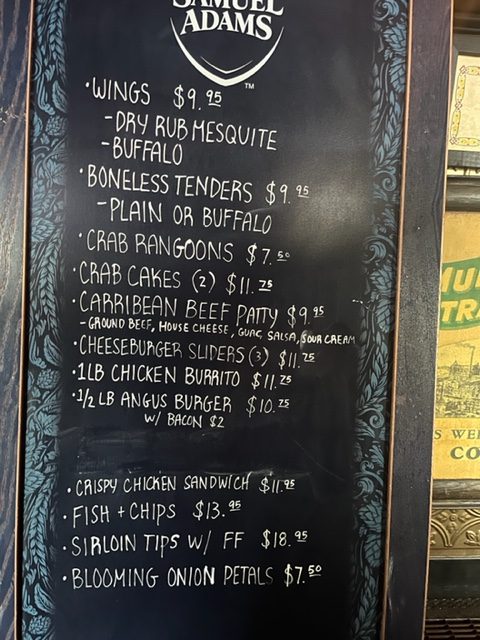 SAMUEL
ADAMS
TM
·WINGS $9.95
-DRY RUB MESQUITE
-BUFFALO
·BONELESS TENDERS $9.95
-PLAIN OR BUFFALO
·CRAB RANGOONS $7.50
·CRAB CAKES (2) $11.75
·CARRIBEAN BEEF PATTY $9.95
-GROUND BEEF, HOUSE CHEESE, GUAC, SALSA, SOUR CREAM
·CHEESEBURGER SLIDERS (3) $11.75
·1LB CHICKEN BURRITO $11.75
·1/2 LB ANGUS BURGER $10.75
W/ BACON $2
·CRISPY CHICKEN SANDWICH $11.95
·FISH + CHIPS $13.95
·SIRLOIN TIPS W/ FF $18.95
·BLOOMING ONION PETALS $7.50
CO